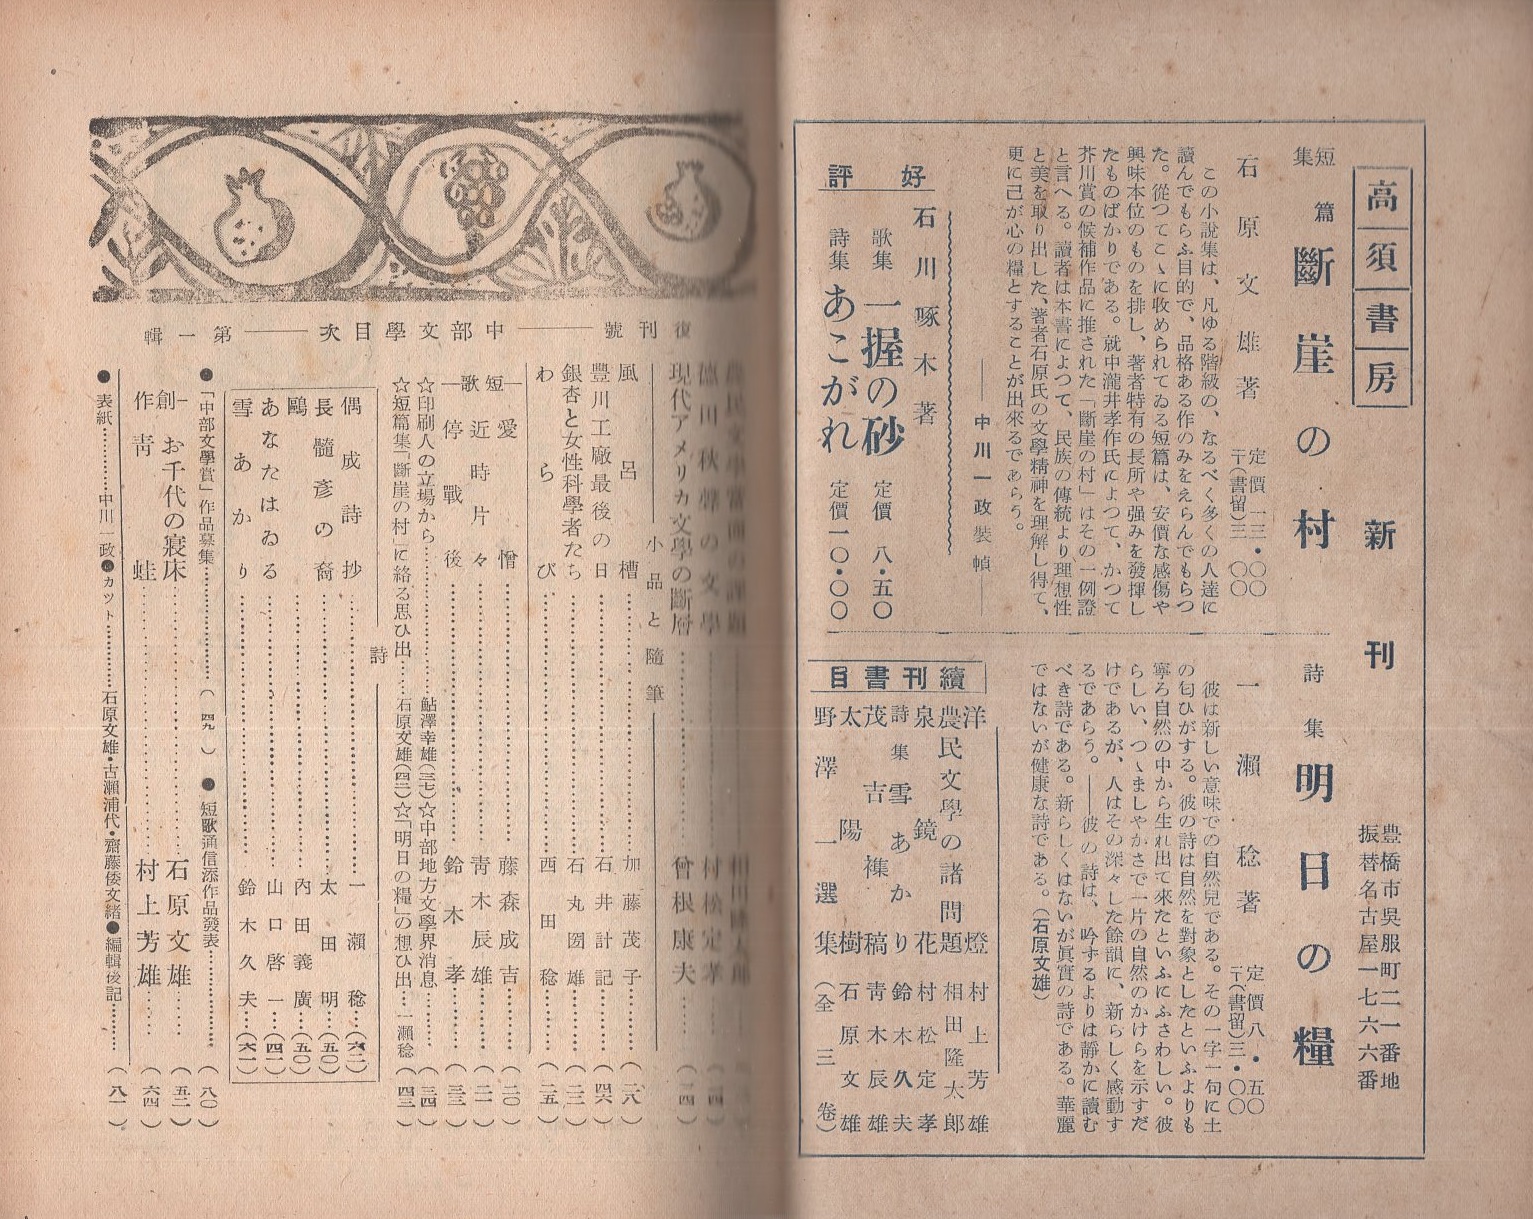 高須書房
新刊
豊橋市吳服町二一番地
振替名古屋一七六六番
短篇集 斷崖の村
石原文雄著 定價一三・〇〇 〒(書留)三・〇〇
この小說集は、凡ゆる階級の、なるべく多くの人達に
讀んでもらふ目的で、品格ある作のみをえらんでもらつ
た。從つてこゝに收められてゐる短篇は、安價な感傷や
興味本位のものを排し、著者特有の長所や强みを發揮し
たものばかりである。就中瀧井孝作氏によつて、かつて
芥川賞の候補作品に推された「斷崖の村」はその一例證
と言へる。讀者は本書によつて、民族の傳統より理想性
と美を取り出した、著者石原氏の文學精神を理解し得て、
更に己が心の糧とすることが出來るであらう。
――中川一政裝幀――
好評
石川啄木著
歌集 一握の砂 定價 八・五〇
詩集 あこがれ 定價一〇・〇〇
詩集 明日の糧
一瀨稔著 定價八・五〇 〒(書留)三・〇〇
彼は新しい意味での自然兒である。その一字一句に土
の匂ひがする。彼の詩は自然を對象としたといふよりも
寧ろ自然の中から生れ出て來たといふにふさわしい。彼
らしい、つゝましやかさで一片の自然のかけらを示すだ
けであるが、人はその深々した餘韻に、新らしく感動す
るであらう。――彼の詩は、吟ずるよりは靜かに讀む
べき詩である。新らしくはないが眞實の詩である。華麗
ではないが健康な詩である。(石原文雄)
續刊書目
洋燈 村上芳雄
農民文學の諸問題 相田隆太郎
泉鏡花 村松定孝
詩集 雪あかり 鈴木久夫
茂吉襍稿 靑木辰雄
太陽樹 石原文雄
野澤一選集(全三卷)
復刊號――中部文學目次――第一輯
農民文學當面の課題 相田隆太郎
德川秋聲の文學 村松定孝
現代アメリカ文學の斷層 曾根康夫(一四)
小品と隨筆
風呂槽 加藤茂子(二八)
豐川工廠最後の日 石井計記(四六)
銀杏と女性科學者たち 石丸圀雄(三二)
わらび 西田稔(二五)
短歌
愛憎 藤森成吉(二〇)
近時片々 靑木辰雄(二一)
停戰後 鈴木孝(三三)
☆印刷人の立場から 鮎澤幸雄(三七)☆中部地方文學界消息(三四)
☆短篇集「斷崖の村」に絡る思ひ出 石原文雄(四二)☆「明日の糧」の想ひ出 一瀨稔(四三)
詩
偶成詩抄 一瀨稔(六二)
長髓彥の裔 太田明(五〇)
鷗 內田義廣(五〇)
あなたはゐる 山口啓一(四一)
雪あかり 鈴木久夫(六一)
●「中部文學賞」作品募集(四九)●短歌通信添作品發表(八〇)
創作
お千代の寢床 石原文雄(五二)
靑蛙 村上芳雄(六四)
●表紙 中川一政●カット 石原文雄・古瀨浦代・齋藤倭文緖●編輯後記(八一)